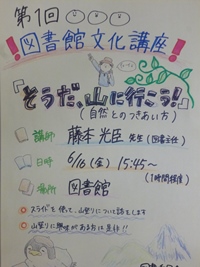 第1回
！図書館文化講座！
『そうだ、山に行こう！』
(自然とのつきあい方)
講師 藤本光臣 先生(図書主任)
日時 6/16(金) 15:45〜
(1時間程度)
場所 図書館
スライドを使って、山登りについて話をします
山登りに興味がある方は是非!!